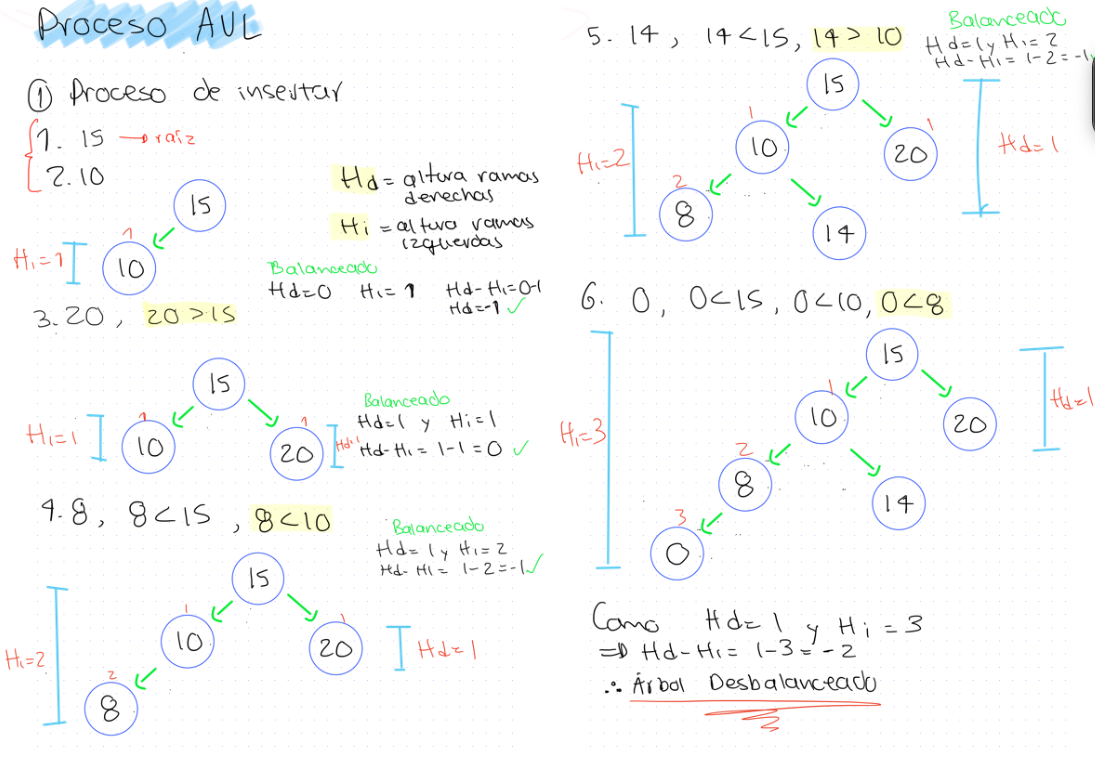 Proceso AVL
① Proceso de insertar
1. 15 → raíz
2. 10
15
1
10
Hi=1
Hd = altura ramas
derechas
Hi = altura ramas
izquierdas
Balanceado
Hd=0 Hi=1 Hd-Hi=0-1
Hd=-1 ✓
3. 20, 20 > 15
15
1
10
1
20
Hi=1
Hd=1
Balanceado
Hd=1 y Hi=1
Hd-Hi = 1-1 = 0 ✓
4. 8, 8<15, 8<10
Balanceado
Hd=1 y Hi=2
Hd-Hi = 1-2=-1 ✓
15
1
10
1
20
2
8
Hi=2
Hd=1
5. 14, 14<15, 14 > 10
Balanceado
Hd=1 y Hi=2
Hd-Hi = 1-2=-1
15
1
10
1
20
2
8
14
Hi=2
Hd=1
6. 0, 0<15, 0<10, 0<8
15
1
10
20
2
8
14
3
0
Hi=3
Hd=1
Como Hd=1 y Hi=3
⇒ Hd-Hi = 1-3 = -2
∴ Árbol Desbalanceado